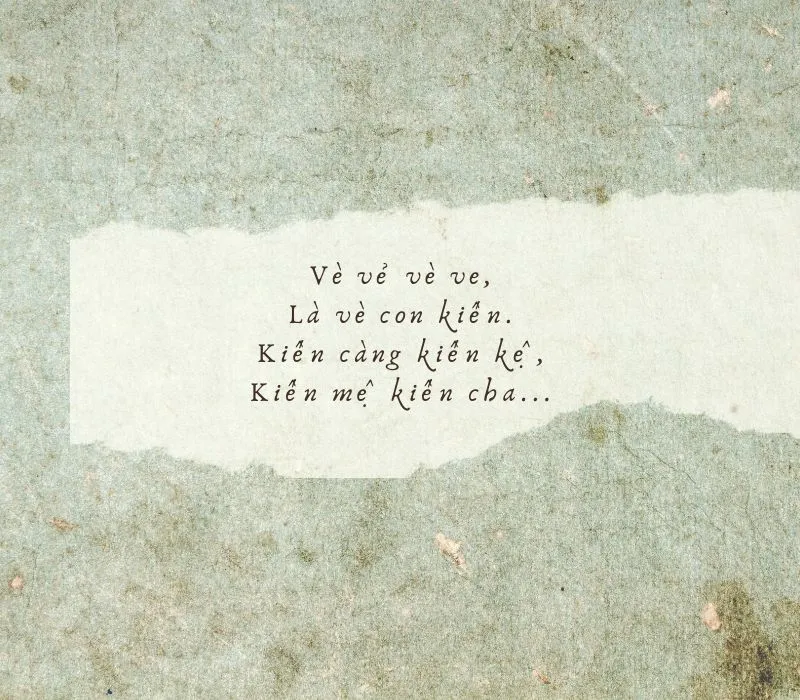 Vè vẻ vè ve,
Là vè con kiến.
Kiến càng kiến kệ,
Kiến mệ kiến cha...